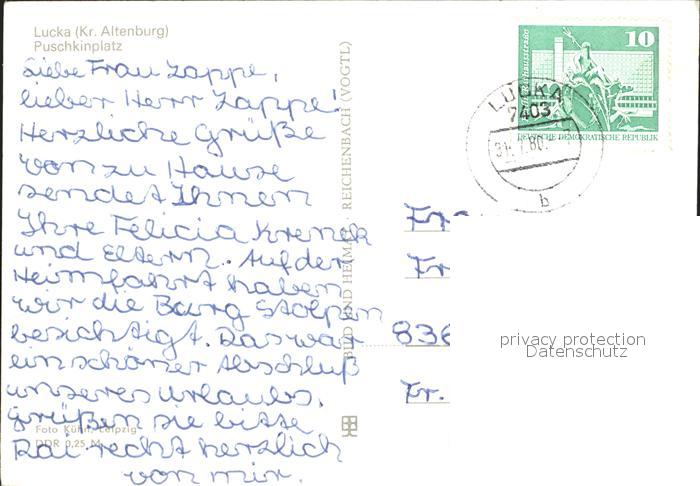 Lucka (Kr. Altenburg)
Puschkinplatz
Liebe Frau Zappe,
lieber Herr Zappe!
Herzliche Grüße
von zu Hause
sendet Ihnen
Ihre Felicia Krenek
und Eltern. Auf der
Heimfahrt haben
wir die Burg Stolpen
besichtigt. Das war
ein schöner Abschluß
unseres Urlaubs.
Grüßen sie bitte
Kai recht herzlich
von mir.
Foto Kühn, Leipzig
DDR 0,25 M
BILD UND HEIMAT · REICHENBACH (VOGTL)
10
Rathausstraße
DEUTSCHE DEMOKRATISCHE REPUBLIK
LUCKA
7403
b
Fr
Fr
836
Fr.
privacy protection
Datenschutz